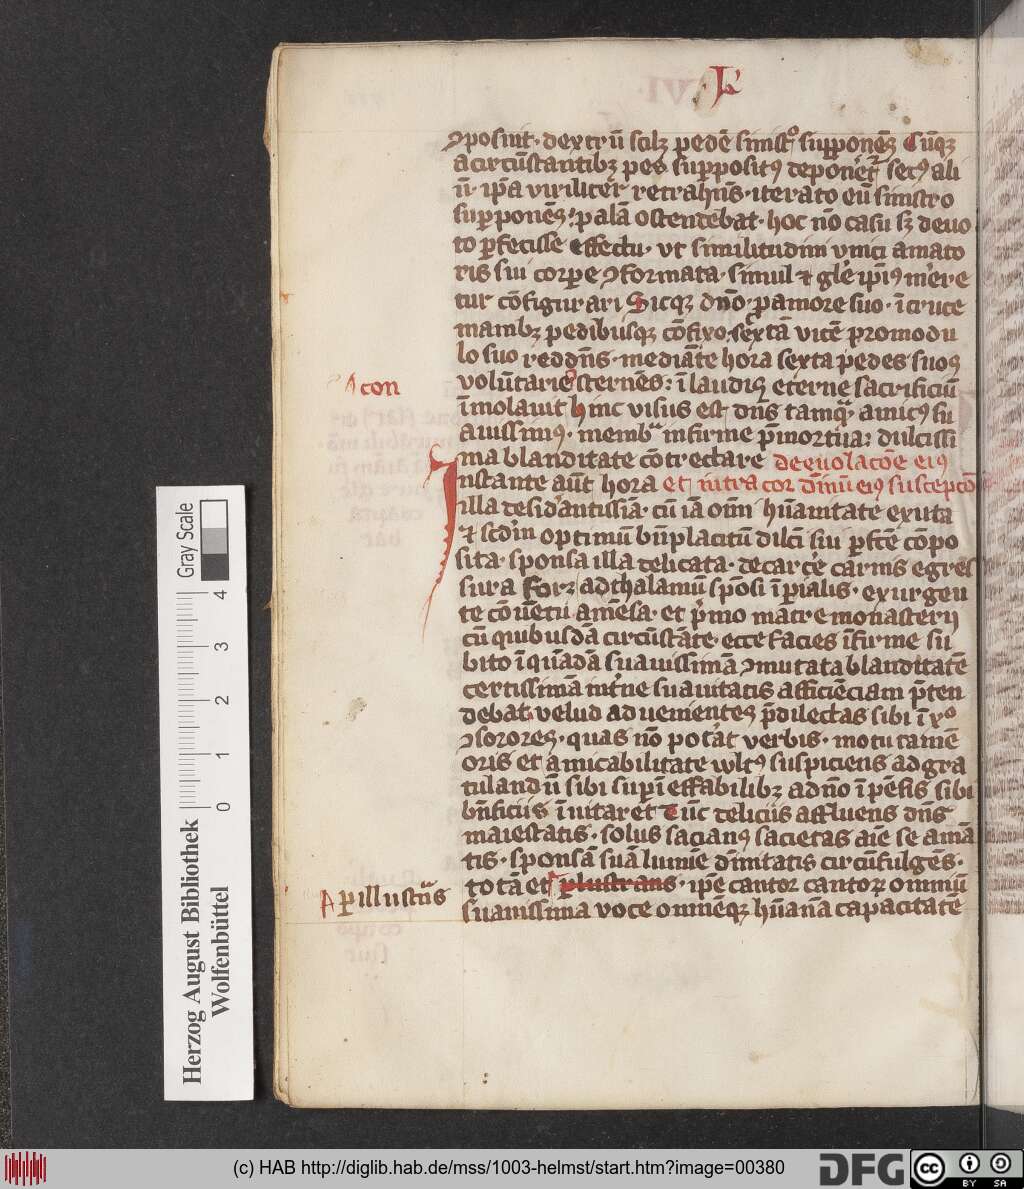 L
ꝯposuit · dextrū scilꝫ pedē sinistº supponēs Cūqꝫ
a circūstantibꝫ pes suppositꝰ deponeret᷑ secꝰ ali
ū · ip̄a viriliter retrahn̄s · iterato eū sinistro
supponēs · palā ostendebat · hoc nō casu sꝫ deuo
to ꝑfecisse effectu · vt similitudini vnici amato
ris sui corꝑe ꝯformata · simul ⁊ gl̄e ip̄iꝰ mere
tur cōfigurari Sicqꝫ dn̄o · p amore suo · ī cruce
manibꝫ pedibusqꝫ cōfixo · sextā vicē pro modu
lo suo reddn̄s · mediāte hora sexta pedes suos
con
volūtarie sternēs : ī laudis eterne sacrificiū
īmolauit hinc visus est dn̄s tamqᷓ · amicꝰ su
auissimꝰ · membᷓ infirme p̄mortua : dulcissi
ma blanditate cōtrectare de euolacōe eiꝰ
Instante aūt hora et intra cor diuinū eiꝰ suscepcōe
illa desidantissīa · cū iā om̄i hūanitate exuta
⁊ scdm optimū bn̄placitū dilci sui ꝑfcē cōpo
sita · sponsa illa delicata · de carcēre carnis egres
sura foꝝ ad thalamū spōsi īperialis · exurgen
te cōuētu a mēsa · et p̄mo matre monasterij
cū quibusdā circūstāte · ecce facies īfirme su
bito ī quādā suauissimā ꝯmutata blanditatē
certissimā int̄ne suauitatis afficiēciam p̄ten
debat velud aduenientes p̄dilectas sibi ī xº
ꝯsorores · quas nō poterat verbis · motu tamē
oris et amicabilitate vultꝰ suspiciens ad gra
tulandū sibi sup ineffabilibꝫ a dn̄o īpēsis sibi
bn̄ficiis īuitaret Tūc deliciis affluens dn̄s
maiestatis · solus sacianꝰ sacietas aīe se amā
tis · sponsā suā lumīe diuinitatis circūfulgēs ·
totā et plustrans · ip̄e cantor cantoꝝ omniū
ꝑillustᷓns
suauissima voce omnēqꝫ hūanā capacitatē
Gray Scale
0 1 2 3 4
Herzog August Bibliothek
Wolfenbüttel
(c) HAB http://diglib.hab.de/mss/1003-helmst/start.htm?image=00380
DFG
cc BY SA